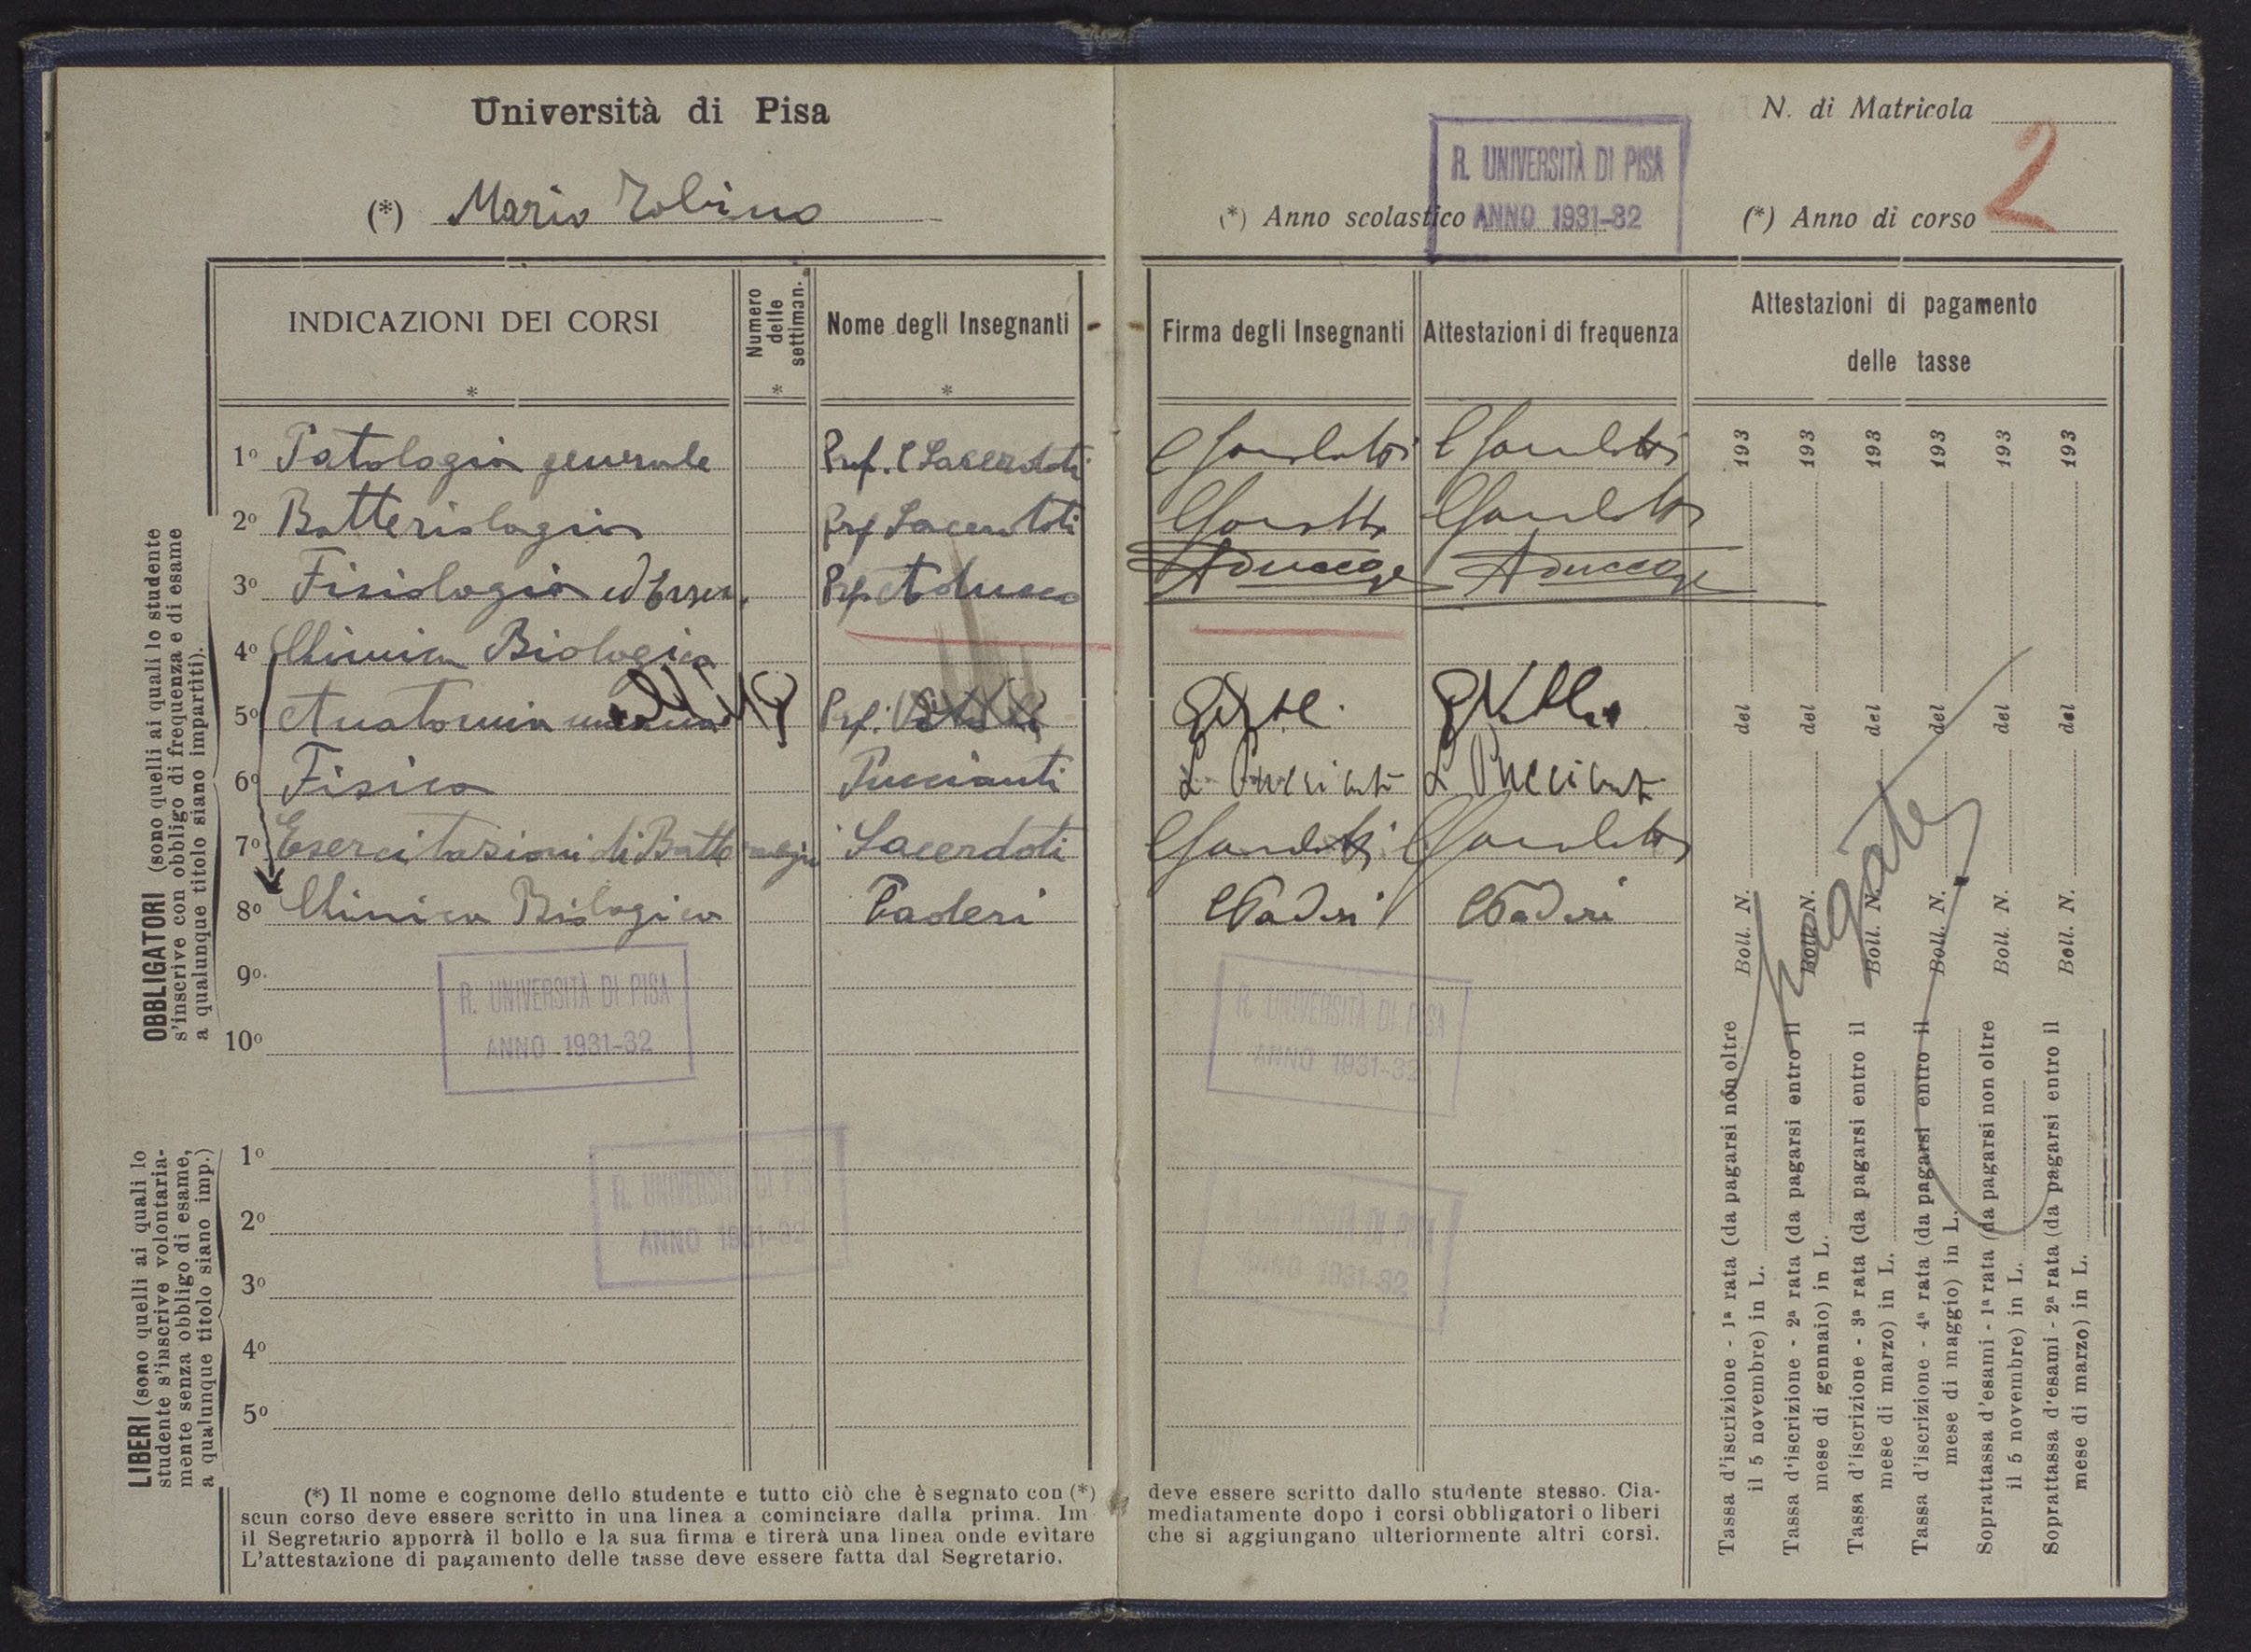 Università di Pisa
(*) Mario Tobino
INDICAZIONI DEI CORSI
*
Numero delle settiman.
*
Nome degli Insegnanti
*
OBBLIGATORI (sono quelli ai quali lo studente
s'inscrive con obbligo di frequenza e di esame
a qualunque titolo siano impartiti).
1º Patologia generale Prof. C Sacerdoti
2º Batteriologia Prof Sacerdoti
3º Fisiologia ed Eserc. Prof Aducco
4º Chimica Biologica
5º Anatomia umana Prof.
6º Fisica Puccianti
7º Esercitazioni di Batteriologia Sacerdoti
8º Chimica Biologica Paderi
9º
10º
R. UNIVERSITÀ DI PISA
ANNO 1931-32
LIBERI (sono quelli ai quali lo
studente s'inscrive volontaria-
mente senza obbligo di esame,
a qualunque titolo siano imp.)
1º
2º
3º
4º
5º
R. UNIVERSITÀ DI PISA
ANNO 1931-32
(*) Il nome e cognome dello studente e tutto ciò che è segnato con (*)
scun corso deve essere scritto in una linea a cominciare dalla prima. Im
il Segretario apporrà il bollo e la sua firma e tirerà una linea onde evitare
L'attestazione di pagamento delle tasse deve essere fatta dal Segretario.
N. di Matricola
R. UNIVERSITÀ DI PISA
ANNO 1931-32
(*) Anno scolastico
(*) Anno di corso 2
Firma degli Insegnanti
Attestazioni di frequenza
Attestazioni di pagamento
delle tasse
C Sacerdoti C Sacerdoti
C Sacerdoti C Sacerdoti
Aducco Aducco
L. Puccianti L Puccianti
C Sacerdoti C Sacerdoti
C Paderi C Paderi
R. UNIVERSITÀ DI PISA
ANNO 1931-32
R. UNIVERSITÀ DI PISA
ANNO 1931-32
deve essere scritto dallo studente stesso. Cia-
mediatamente dopo i corsi obbligatori o liberi
che si aggiungano ulteriormente altri corsi.
Tassa d'iscrizione - 1ª rata (da pagarsi non oltre
il 5 novembre) in L.
Boll. N. del 193
Tassa d'iscrizione - 2ª rata (da pagarsi entro il
mese di gennaio) in L.
Boll. N. del 193
Tassa d'iscrizione - 3ª rata (da pagarsi entro il
mese di marzo) in L.
Boll. N. del 193
Tassa d'iscrizione - 4ª rata (da pagarsi entro il
mese di maggio) in L.
Boll. N. del 193
Soprattassa d'esami - 1ª rata (da pagarsi non oltre
il 5 novembre) in L.
Boll. N. del 193
Soprattassa d'esami - 2ª rata (da pagarsi entro il
mese di marzo) in L.
Boll. N. del 193
pagate